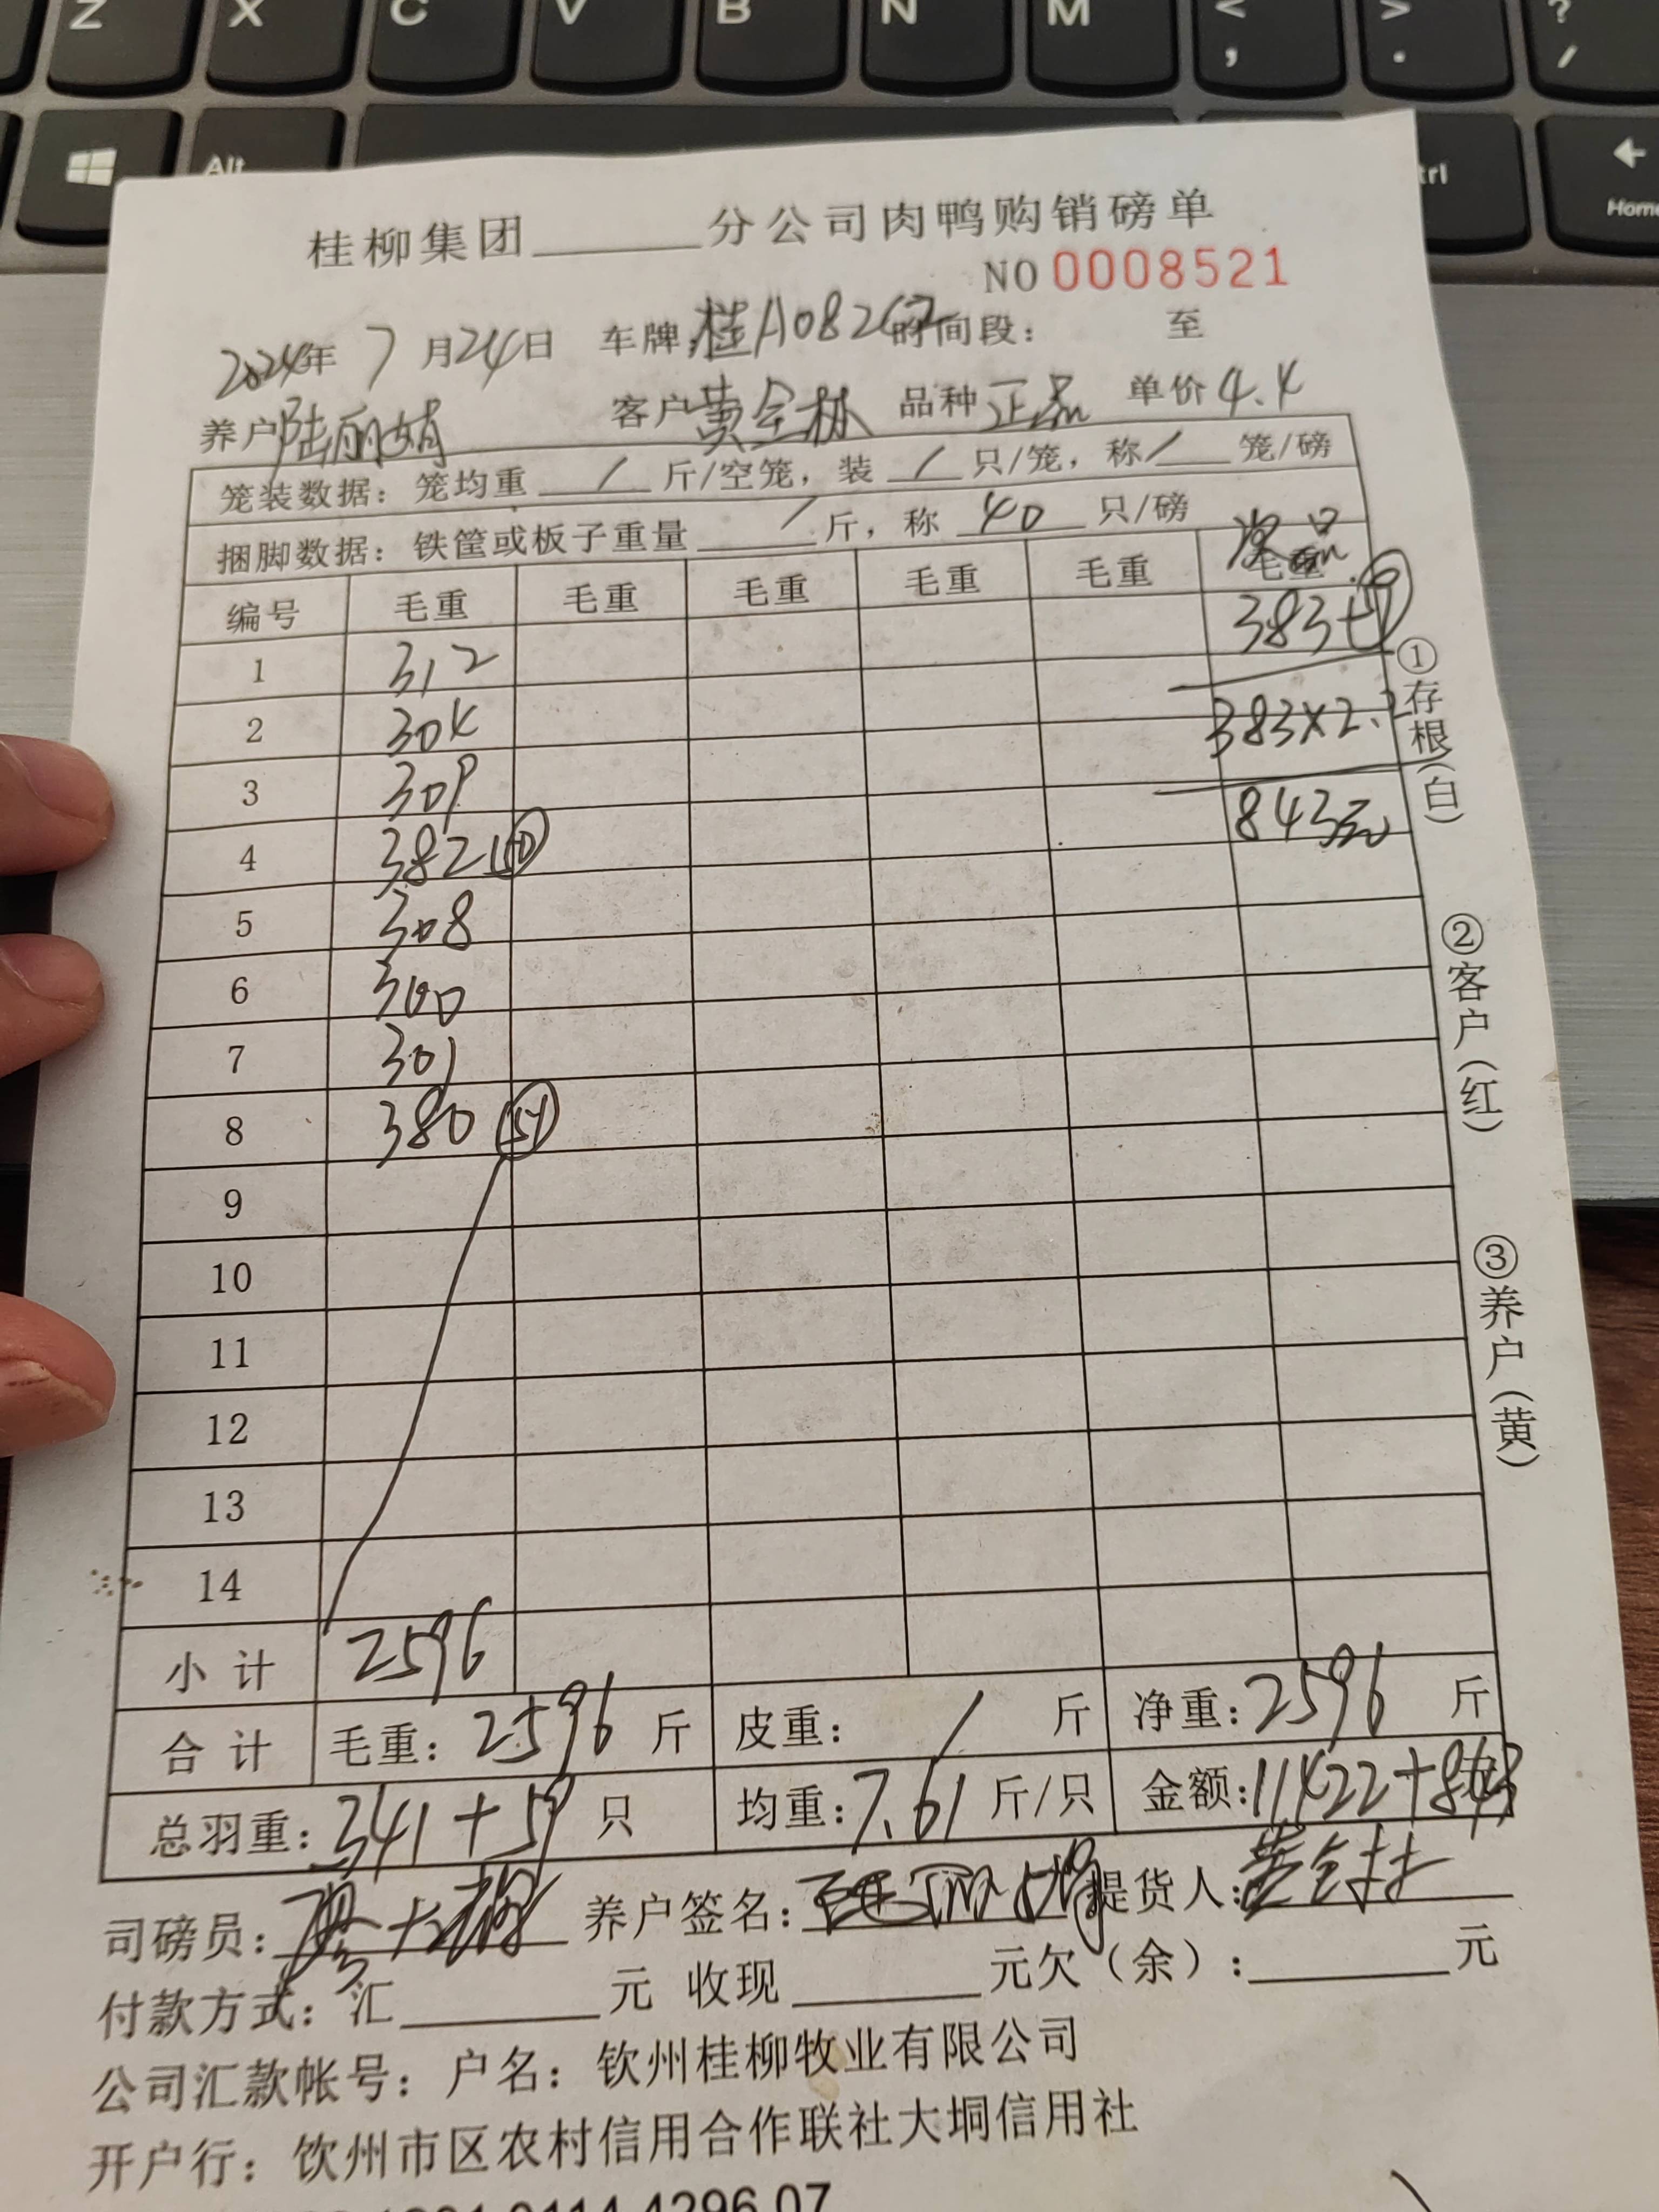 Z X C V B N M < , > . ? /
Alt Ctrl Home
桂柳集团______分公司肉鸭购销磅单
NO 0008521
2024年 7 月24日 车牌:桂A082 时间段: 至
养户陆丽娟 客户黄全林 品种正品 单价4.4
笼装数据: 笼均重 / 斤/空笼, 装 / 只/笼, 称 / 笼/磅
捆脚数据: 铁筐或板子重量 / 斤, 称 40 只/磅
编号 毛重 毛重 毛重 毛重 毛重 毛重
1 312 383+59
2 304 383×2.2
3 309 843元
4 382 50
5 308
6 300
7 301
8 380 51
9
10
11
12
13
14
小计 2596
合计 毛重: 2596 斤 皮重: / 斤 净重: 2596 斤
总羽重: 341+59 只 均重: 7.61 斤/只 金额: 11422+843
司磅员: 养户签名: 陆丽娟 提货人: 黄全林
付款方式: 汇______元 收现______元欠(余):______元
公司汇款帐号: 户名: 钦州桂柳牧业有限公司
开户行: 饮州市区农村信用合作联社大垌信用社
①存根(白)
②客户(红)
③养户(黄)